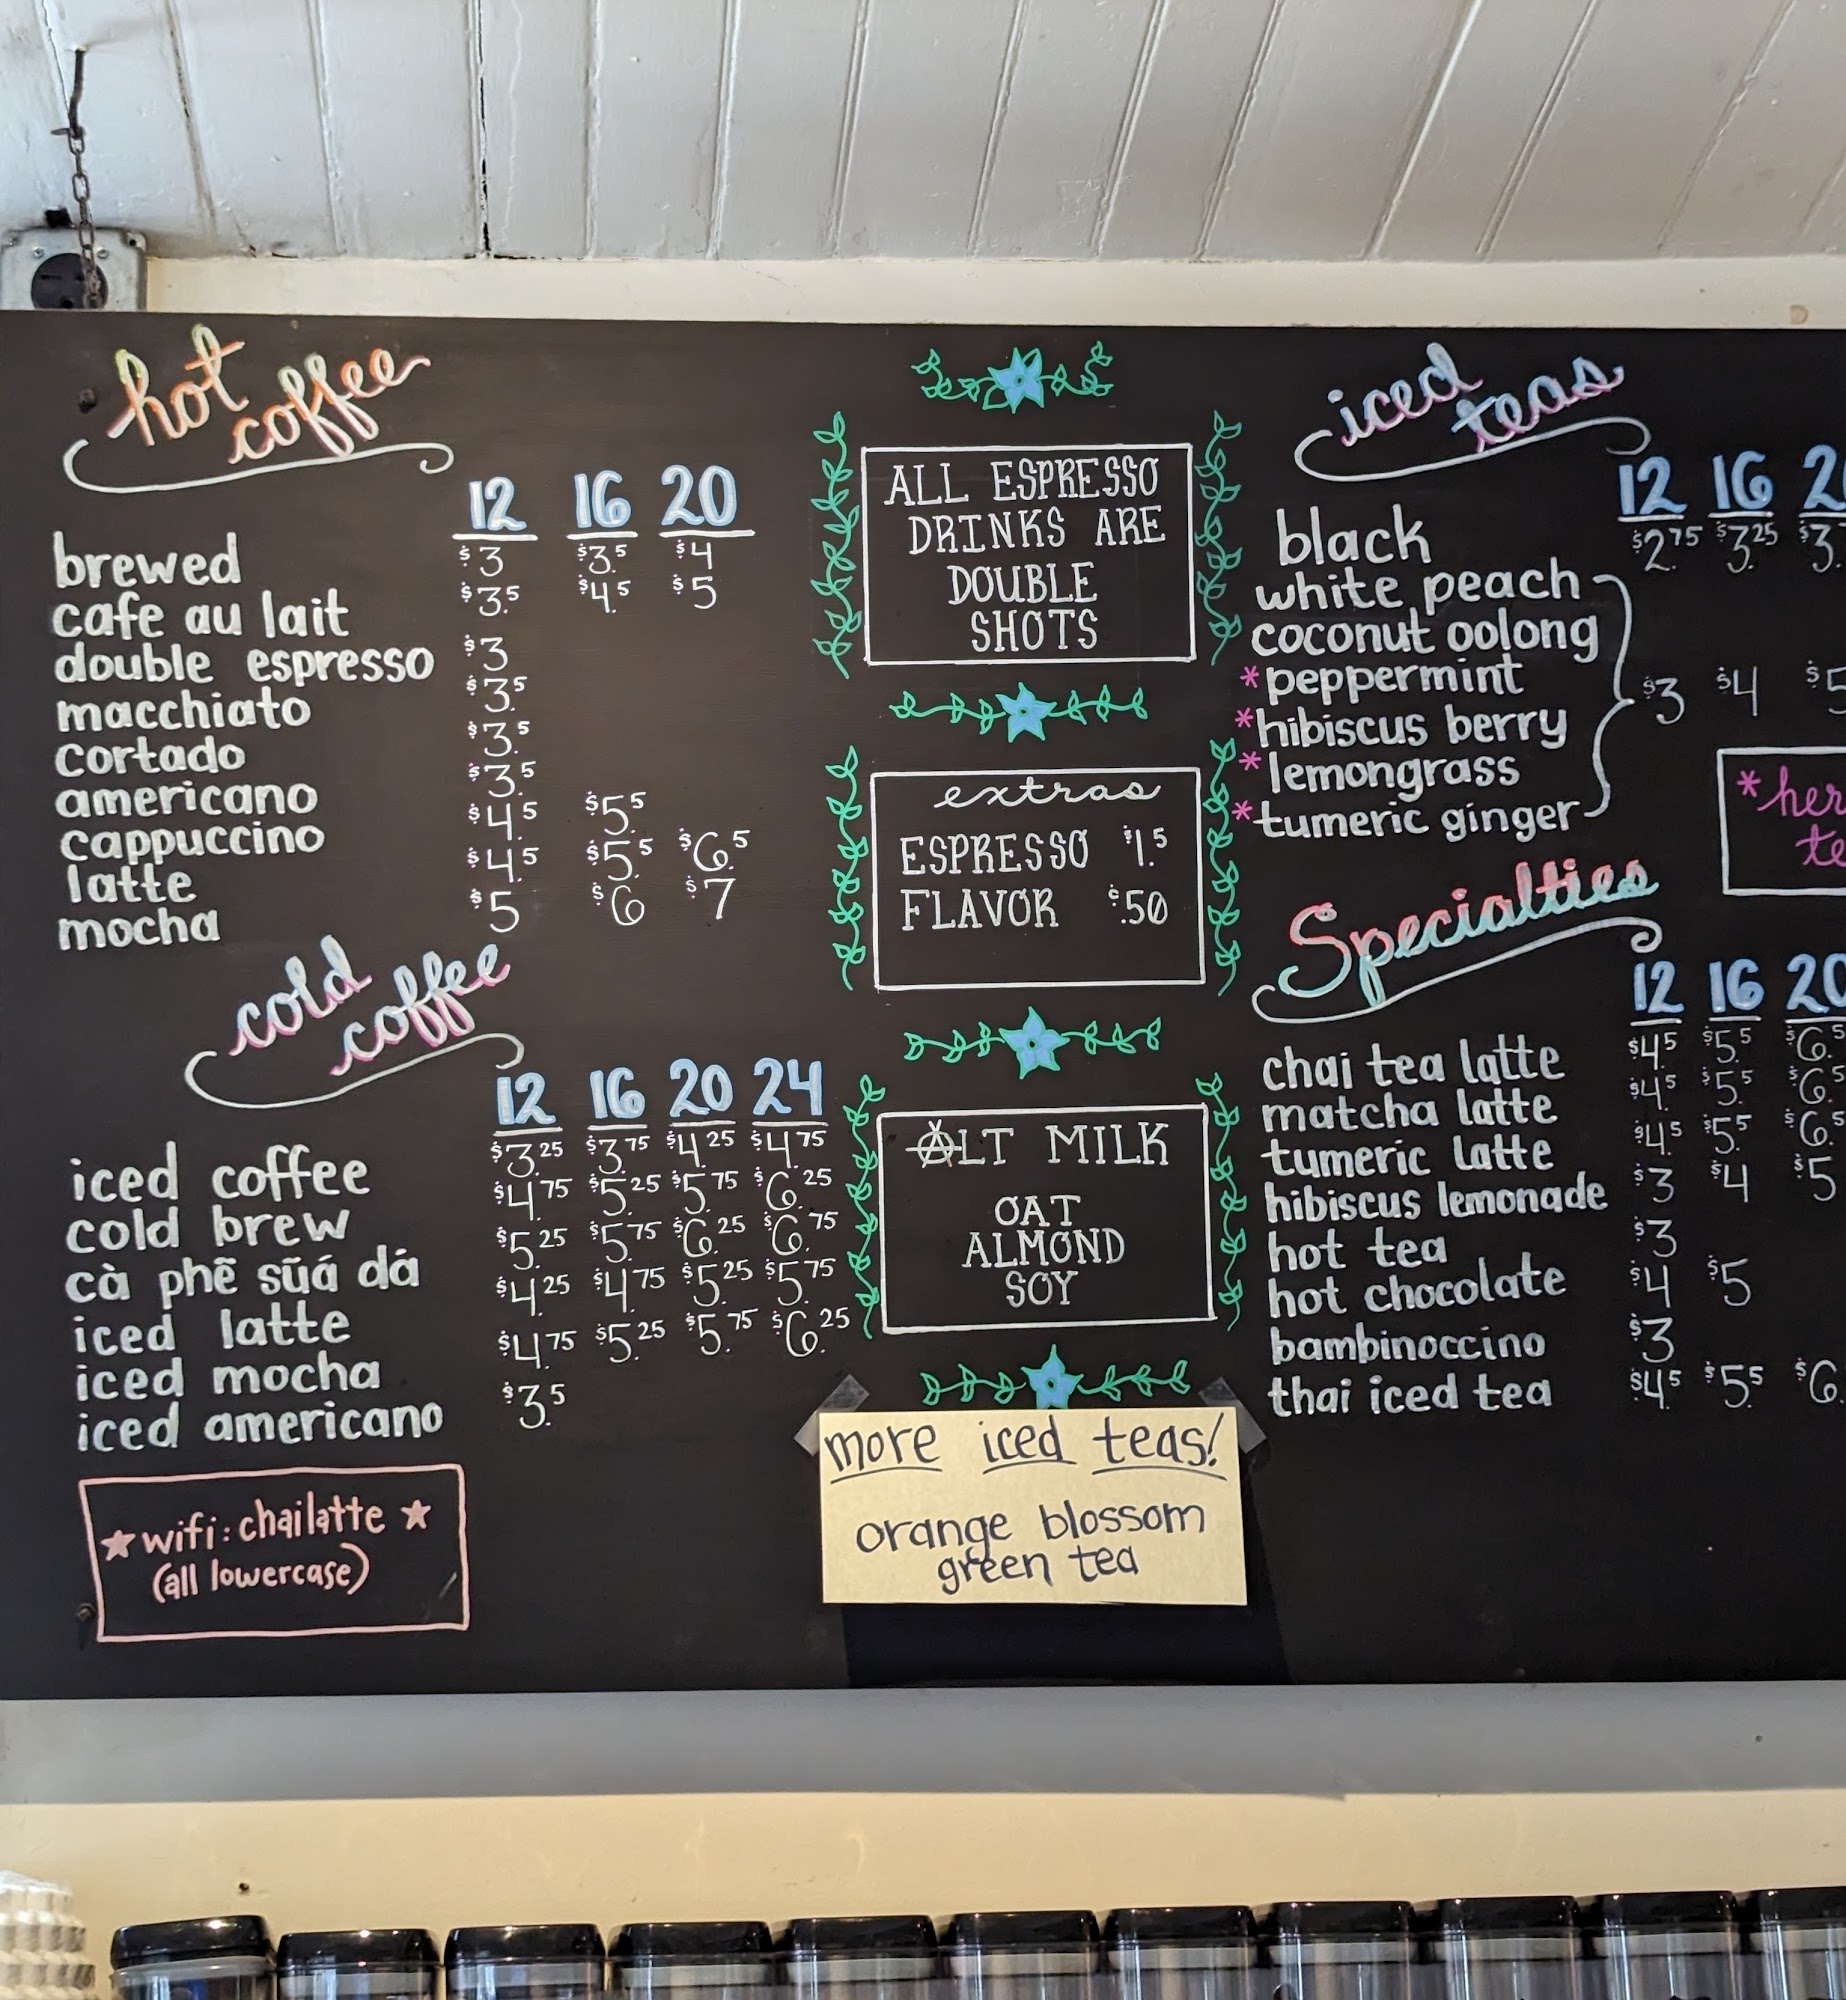 hot coffee
12 16 20
brewed $3 $3.5 $4
cafe au lait $3.5 $4.5 $5
double espresso $3
macchiato $3.5
cortado $3.5
americano $3.5
cappuccino $4.5 $5.5
latte $4.5 $5.5 $6.5
mocha $5 $6 $7
cold coffee
12 16 20 24
iced coffee $3.25 $3.75 $4.25 $4.75
cold brew $4.75 $5.25 $5.75 $6.25
cà phẽ sūá dá $5.25 $5.75 $6.25 $6.75
iced latte $4.25 $4.75 $5.25 $5.75
iced mocha $4.75 $5.25 $5.75 $6.25
iced americano $3.5
★ wifi: chailatte ★
(all lowercase)
ALL ESPRESSO
DRINKS ARE
DOUBLE
SHOTS
extras
ESPRESSO $1.5
FLAVOR $.50
ALT MILK
OAT
ALMOND
SOY
more iced teas!
orange blossom
green tea
iced teas
12 16
black $2.75 $3.25 $3.
white peach
coconut oolong
*peppermint $3 $4 $5
*hibiscus berry
*lemongrass
*tumeric ginger
*her
te
Specialties
12 16 20
chai tea latte $4.5 $5.5 $6.5
matcha latte $4.5 $5.5 $6.5
tumeric latte $4.5 $5.5 $6.5
hibiscus lemonade $3 $4 $5
hot tea $3
hot chocolate $4 $5
bambinoccino $3
thai iced tea $4.5 $5.5 $6